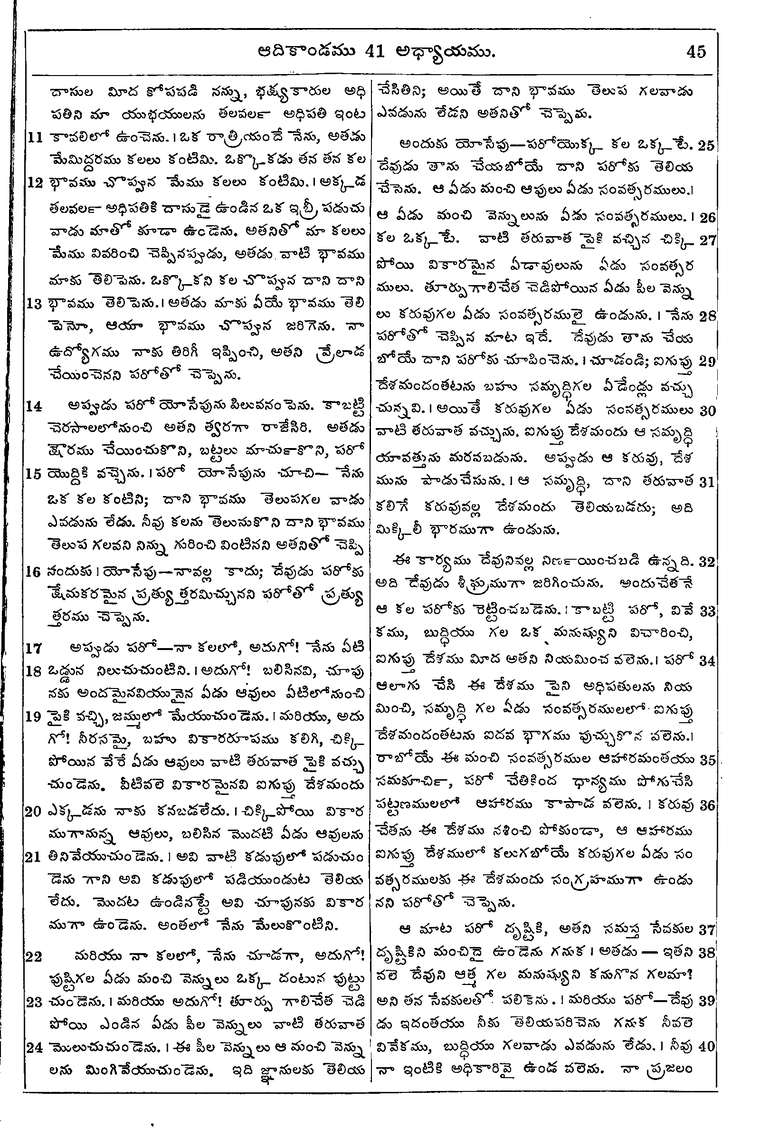 ఆదికాండము 41 అధ్యాయము.
45
దాసుల మీద కోపపడి నన్ను, భక్ష్యకారుల అధి
పతిని మా యుభయులను తలవలర్‌ అధిపతి ఇంట
11 కావలిలో ఉంచెను. । ఒక రాత్రియందే నేను, అతడు
మేమిద్దరము కలలు కంటిమి. ఒక్కొకడు తన తన కల
12 భావము చొప్పున మేము కలలు కంటిమి. । అక్కడ
తలవలర్‌ అధిపతికి దాసుడై ఉండిన ఒక ఇబ్రీ పడుచు
వాడు మాతో కూడా ఉండెను. అతనితో మా కలలు
మేము వివరించి చెప్పినప్పుడు, అతడు వాటి భావము
మాకు తెలిపెను. ఒక్కొకని కల చొప్పున దాని దాని
13 భావము తెలిపెను. । అతడు మాకు ఏయే భావము తెలి
పెనో, ఆయా భావము చొప్పున జరిగెను. నా
ఉద్యోగము నాకు తిరిగి ఇప్పించి, అతని వ్రేలాడ
చేయించెనని పరోతో చెప్పెను.
14 అప్పుడు పరో యోసేపును పిలువనంపెను. కాబట్టి
చెరసాలలోనుంచి అతని త్వరగా రాజేసిరి. అతడు
క్షౌరము చేయించుకొని, బట్టలు మార్చుకొని, పరో
15 యొద్దికి వచ్చెను. । పరో యోసేపును చూచి— నేను
ఒక కల కంటిని; దాని భావము తెలుపగల వాడు
ఎవడును లేడు. నీవు కలను తెలుసుకొని దాని భావము
తెలుప గలవని నిన్ను గురించి వింటినని అతనితో చెప్పి
16 నందుకు । యోసేపు—నావల్ల కాదు; దేవుడు పరోకు
క్షేమకరమైన ప్రత్యుత్తరమిచ్చునని పరోతో ప్రత్యు
త్తరము చెప్పెను.
17 అప్పుడు పరో—నా కలలో, అదుగో! నేను ఏటి
18 ఒడ్డున నిలుచుచుంటిని. । అదుగో! బలిసినవి, చూపు
నకు అందమైనవియునైన ఏడు ఆవులు ఏటిలోనుంచి
19 పైకి వచ్చి, జమ్ములో మేయుచుండెను. । మరియు, అదు
గో! నీరసమై, బహు వికారరూపము కలిగి, చిక్కి
పోయిన వేరే ఏడు ఆవులు వాటి తరువాత పైకి వచ్చు
చుండెను. వీటివలె వికారమైనవి ఐగుప్తు దేశమందు
20 ఎక్కడను నాకు కనబడలేదు. । చిక్కిపోయి వికార
ముగానున్న ఆవులు, బలిసిన మొదటి ఏడు ఆవులను
21 తినివేయుచుండెను. । అవి వాటి కడుపులో పడుచుం
డెను గాని అవి కడుపులో పడియుండుట తెలియ
లేదు. మొదట ఉండినట్టే అవి చూపునకు వికార
ముగా ఉండెను. అంతలో నేను మేలుకొంటిని.
22 మరియు నా కలలో, నేను చూడగా, అదుగో!
పుష్టిగల ఏడు మంచి వెన్నులు ఒక్క దంటున పుట్టు
23 చుండెను. । మరియు అదుగో! తూర్పు గాలిచేత చెడి
పోయి ఎండిన ఏడు పీల వెన్నులు వాటి తరువాత
24 మొలుచుచుండెను. । ఈ పీల వెన్నులు ఆ మంచి వెన్ను
లను మింగివేయుచుండెను. ఇది జ్ఞానులకు తెలియ
చేసితిని; అయితే దాని భావము తెలుప గలవాడు
ఎవడును లేడని అతనితో చెప్పెను.
అందుకు యోసేపు—పరోయొక్క కల ఒక్కటే. 25
దేవుడు తాను చేయబోయే దాని పరోకు తెలియ
చేసెను. ఆ ఏడు మంచి ఆవులు ఏడు సంవత్సరములు. ।
ఆ ఏడు మంచి వెన్నులును ఏడు సంవత్సరములు. । 26
కల ఒక్కటే. వాటి తరువాత పైకి వచ్చిన చిక్కి 27
పోయి వికారమైన ఏడావులును ఏడు సంవత్సర
ములు. తూర్పుగాలిచేత చెడిపోయిన ఏడు పీల వెన్ను
లు కరువుగల ఏడు సంవత్సరములై ఉండును. । నేను 28
పరోతో చెప్పిన మాట ఇదే. దేవుడు తాను చేయ
బోయే దాని పరోకు చూపించెను. । చూడండి; ఐగుప్తు 29
దేశమందంతటను బహు సమృద్ధిగల ఏడేండ్లు వచ్చు
చున్నవి. । అయితే కరువుగల ఏడు సంవత్సరములు 30
వాటి తరువాత వచ్చును. ఐగుప్తు దేశమందు ఆ సమృద్ధి
యావత్తును మరవబడును. అప్పుడు ఆ కరువు, దేశ
మును పాడుచేసును. । ఆ సమృద్ధి, దాని తరువాత 31
కలిగే కరువువల్ల దేశమందు తెలియబడదు; అది
మిక్కిలీ భారముగా ఉండును.
ఈ కార్యము దేవునివల్ల నిర్ణయించబడి ఉన్నది. 32
అది దేవుడు శీఘ్రముగా జరిగించును. అందుచేతనే
ఆ కల పరోకు రెట్టించబడెను. । కాబట్టి పరో, వివే 33
కము, బుద్ధియు గల ఒక మనుష్యుని విచారించి,
ఐగుప్తు దేశము మీద అతని నియమించ వలెను. । పరో 34
ఆలాగు చేసి ఈ దేశము పైని అధిపతులను నియ
మించి, సమృద్ధి గల ఏడు సంవత్సరములలో ఐగుప్తు
దేశమందంతటను ఐదవ భాగము పుచ్చుకొన వలెను. ।
రాబోయే ఈ మంచి సంవత్సరముల ఆహారమంతయు 35
సమకూర్చి, పరో చేతికింద ధాన్యము పోగుచేసి
పట్టణములలో ఆహారము కాపాడ వలెను. । కరువు 36
చేతను ఈ దేశము నశించి పోకుండా, ఆ ఆహారము
ఐగుప్తు దేశములో కలుగబోయే కరువుగల ఏడు సం
వత్సరములకు ఈ దేశమందు సంగ్రహముగా ఉండు
నని పరోతో చెప్పెను.
ఆ మాట పరో దృష్టికి, అతని సమస్త సేవకుల 37
దృష్టికిని మంచిదై ఉండెను గనుక । అతడు — ఇతని 38
వలె దేవుని ఆత్మ గల మనుష్యుని కనుగొన గలమా?
అని తన సేవకులతో పలికెను. । మరియు పరో—దేవు 39
డు ఇదంతయు నీకు తెలియపరిచెను గనుక నీవలె
వివేకము, బుద్ధియు గలవాడు ఎవడును లేడు. । నీవు 40
నా ఇంటికి అధికారివై ఉండ వలెను. నా ప్రజలం